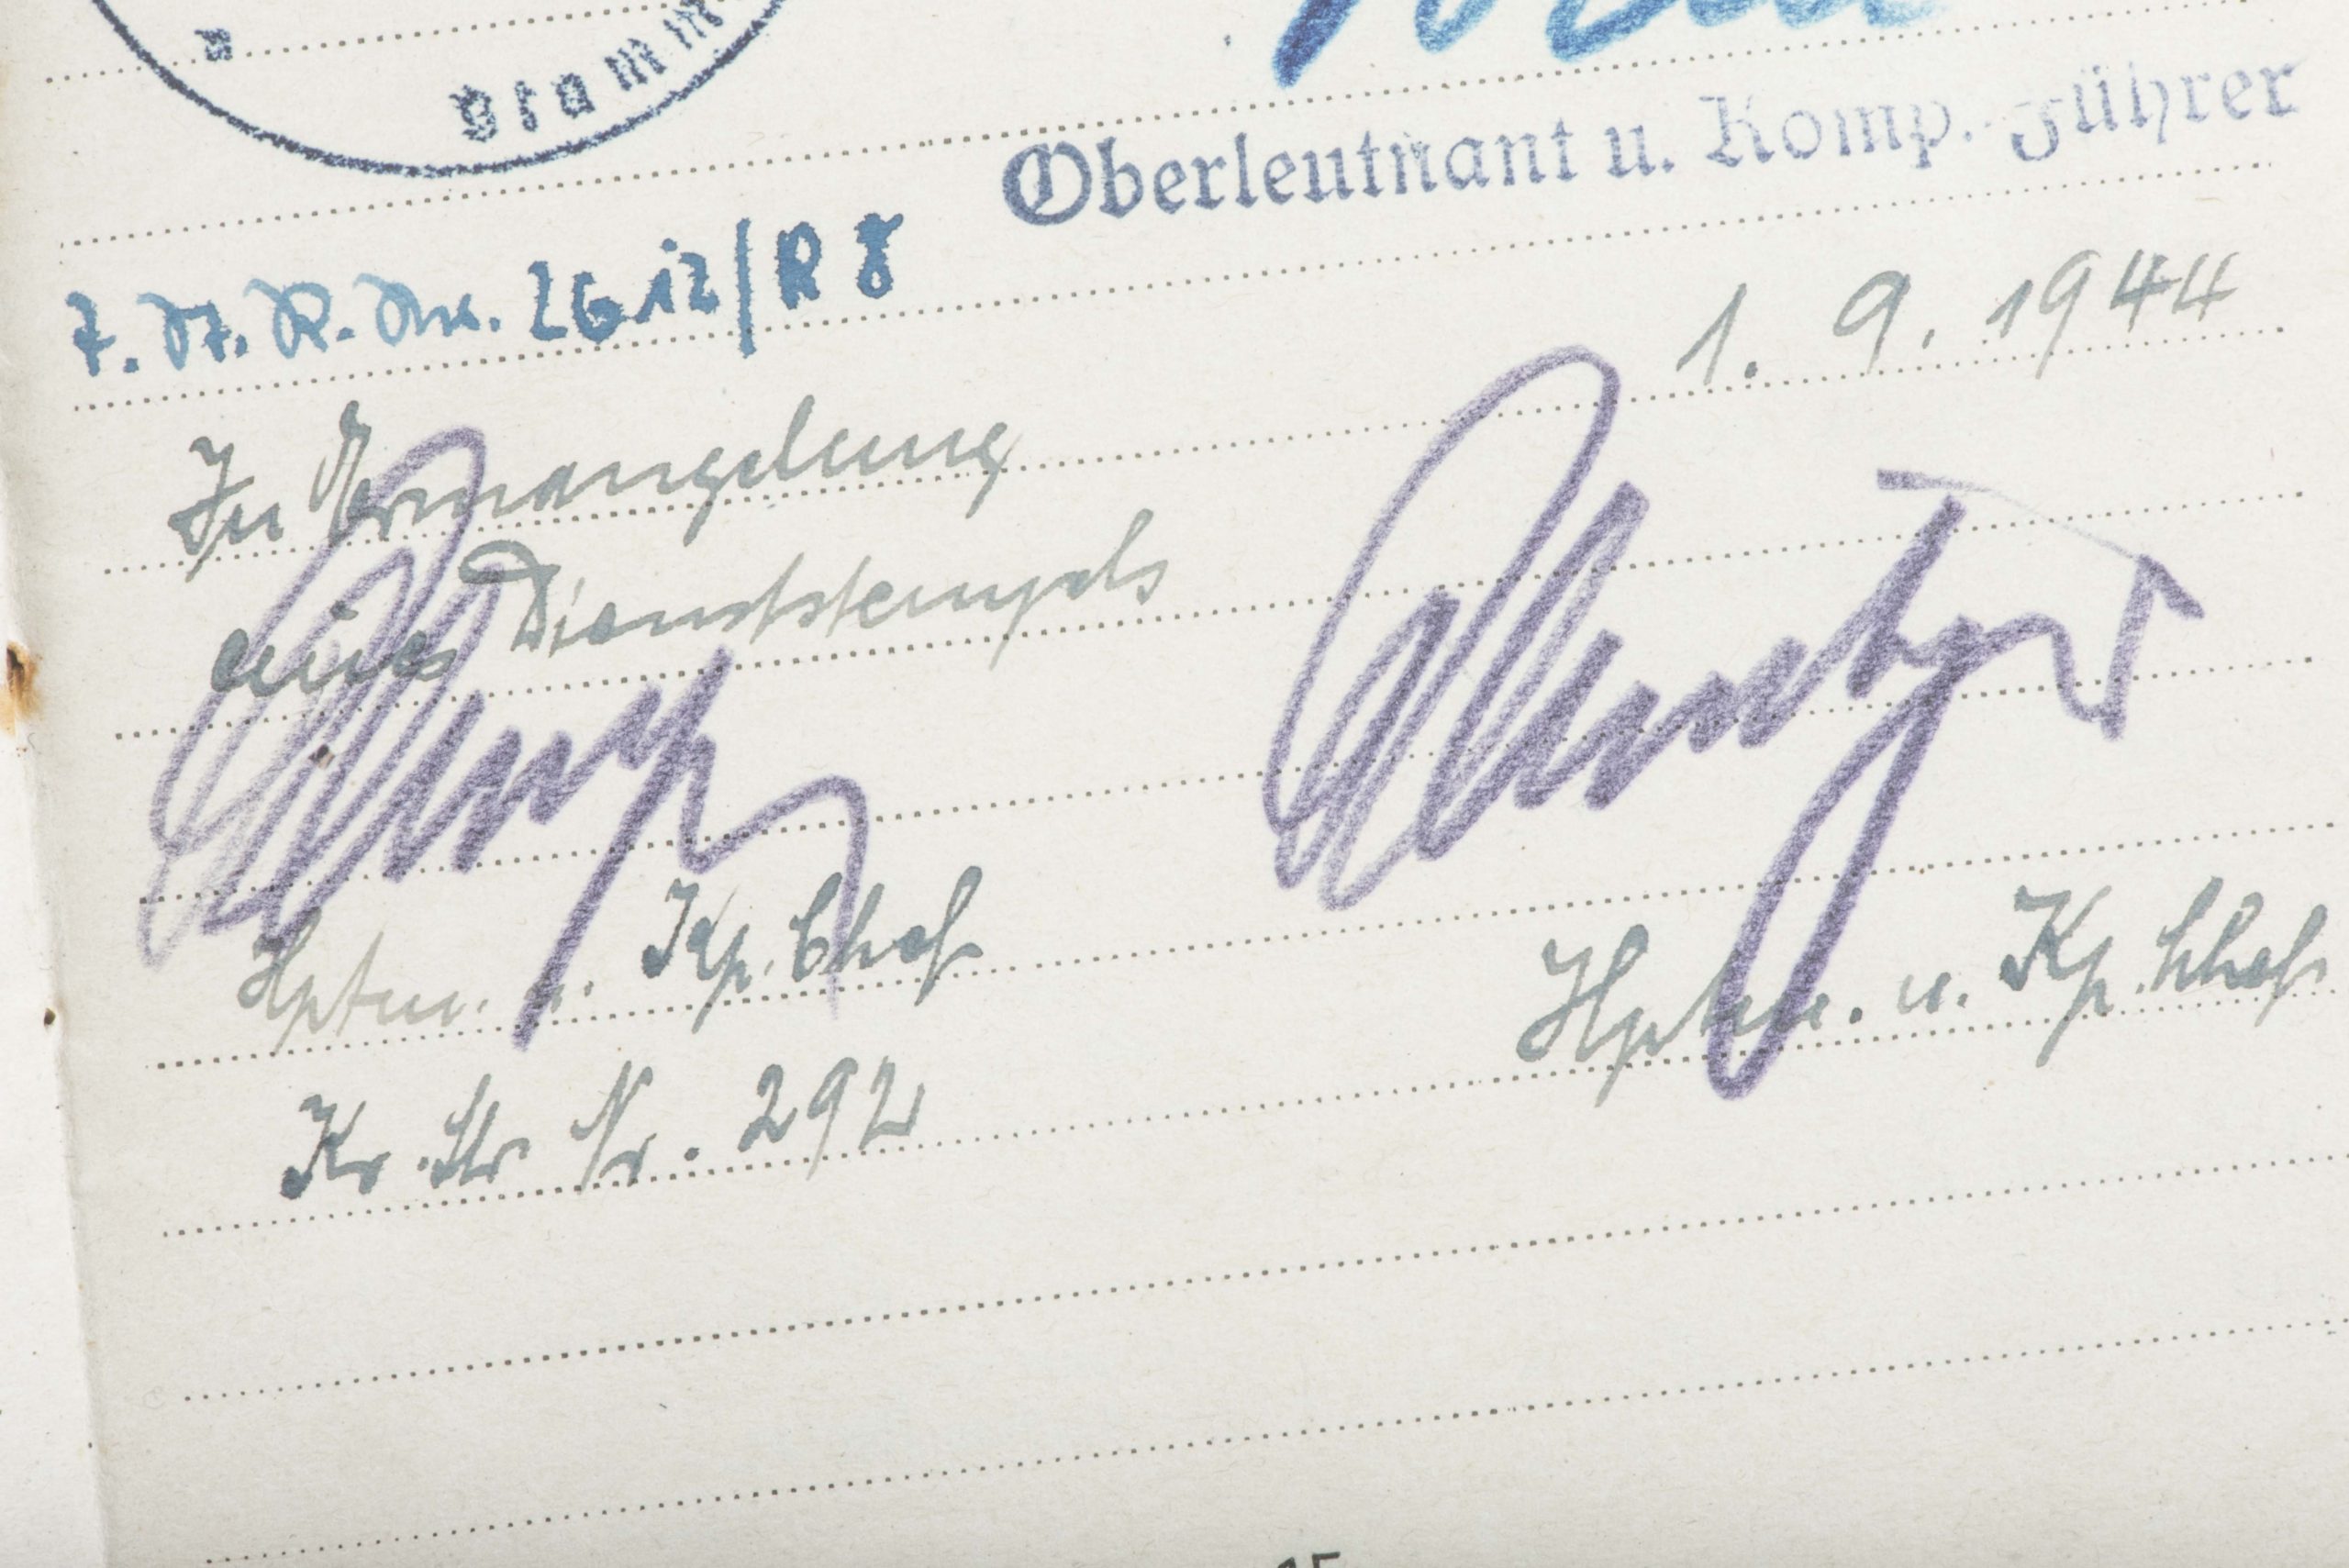 Stamm
Oberleutnant u. Komp.-Führer
2612/R 8
1. 9. 1944
In Ermangelung
eines Dienststempels
Hptm. u. Kp. Chef
Hptm. u. Kp. Chef
Kr. Str Nr. 292
15